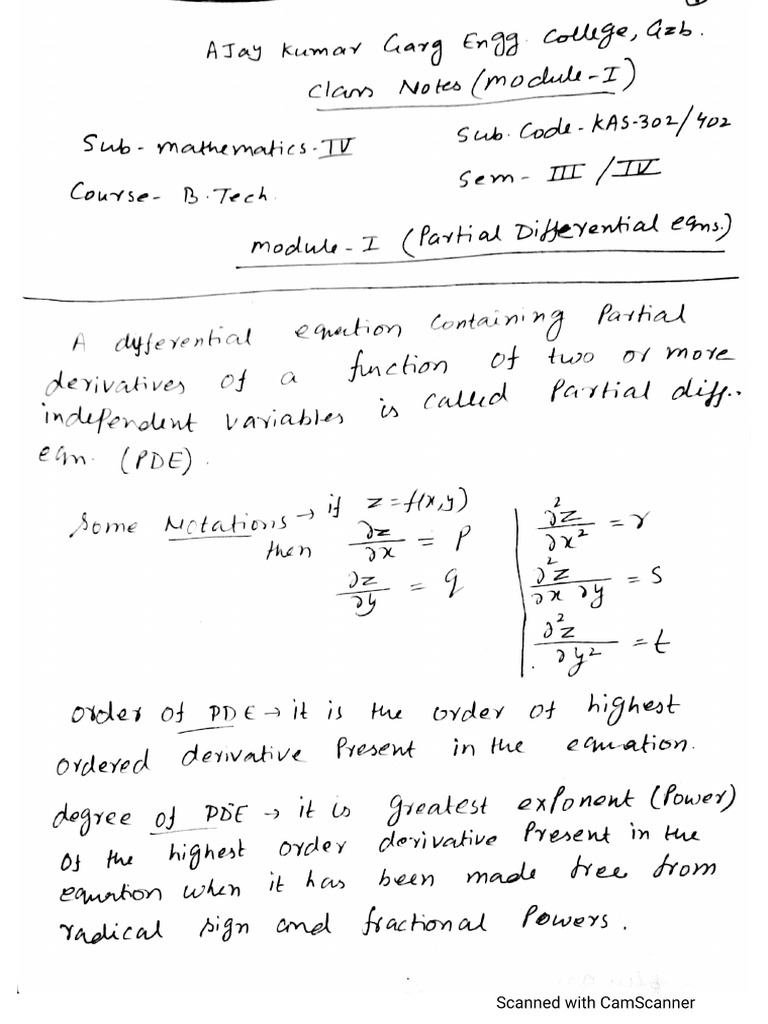 Ajay Kumar Garg Engg. College, Gzb.
Class Notes (Module-I)
Sub- Mathematics-IV
Sub. Code- KAS-302/402
Course- B.Tech.
Sem- III / IV
Module-I (Partial Differential eqns.)
A differential equation containing Partial
derivatives of a function of two or more
independent variables is called Partial diff.
eqn. (PDE).
Some Notations → if z=f(x,y)
then ∂z/∂x = p
∂z/∂y = q
∂²z/∂x² = r
∂²z/∂x ∂y = s
∂²z/∂y² = t
Order of PDE → it is the order of highest
ordered derivative Present in the equation.
degree of PDE → it is greatest exponent (Power)
of the highest order derivative Present in the
equation when it has been made free from
radical sign and fractional Powers.
Scanned with CamScanner